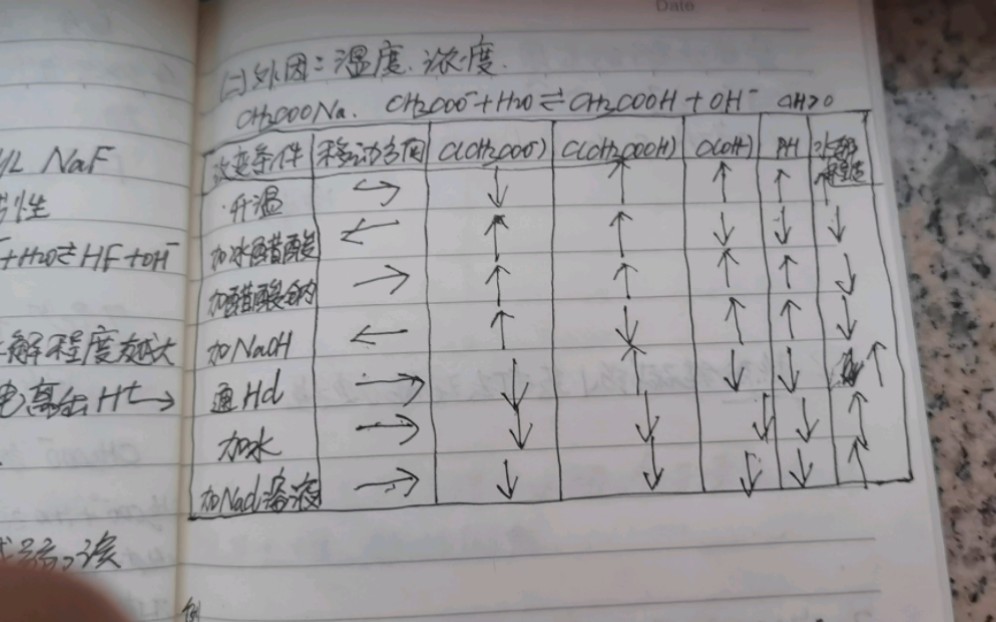 Date
(二)外因：温度、浓度.
CH₃COONa. CH₃COO⁻+H₂O⇌CH₃COOH+OH⁻ ΔH>0
改变条件 移动方向 C(CH₃COO⁻) C(CH₃COOH) C(OH⁻) PH 水解程度
升温 → ↓ ↑ ↑ ↑ ↑
加冰醋酸 ← ↑ ↑ ↓ ↓ ↓
加醋酸钠 → ↑ ↑ ↑ ↑ ↓
加NaOH ← ↑ ↓ ↑ ↑ ↓
通HCl → ↓ ↑ ↓ ↓ ↑
加水 → ↓ ↓ ↓ ↓ ↑
加NaCl溶液 → ↓ ↓ ↓ ↓ ↑
NaF
性
+H₂O⇌HF+OH⁻
解程度越大
电离出H⁺→
该
例